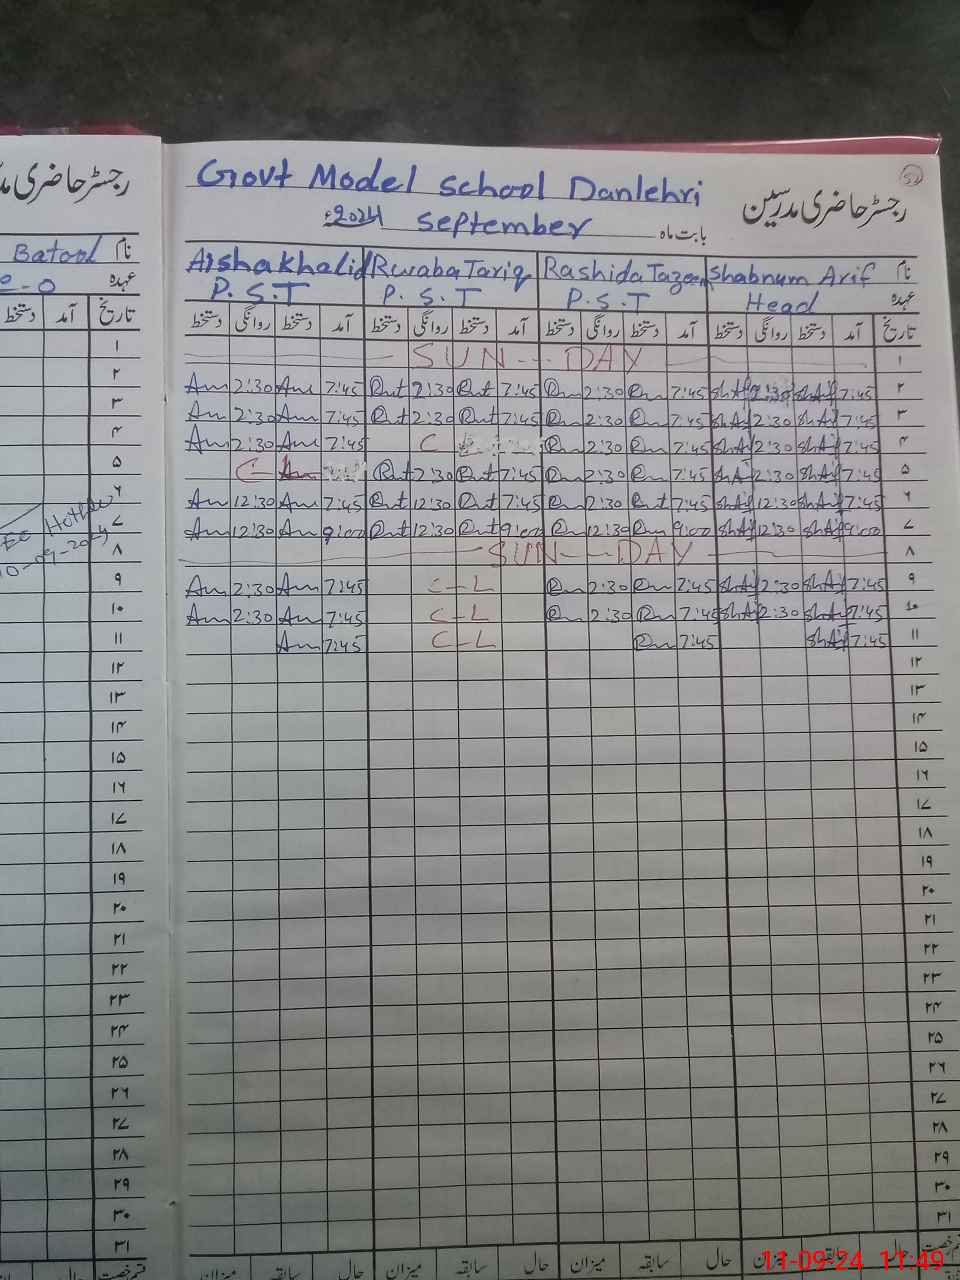 رجسٹر حاضری مدرسین
52
Govt Model School Danlehri
رجسٹر حاضری مد
بابت ماہ September 2024ء
Batool نام
Aisha Khalid Rwaba Tariq Rashida Tazeen Shabnum Arif نام
عہدہ
P.S.T P.S.T P.S.T Head عہدہ
دستخط آمد تاریخ
دستخط روانگی دستخط آمد دستخط روانگی دستخط آمد دستخط روانگی دستخط آمد دستخط روانگی دستخط آمد تاریخ
SUN--DAY ۱
Am 2:30 Am 7:45 Rut 2:30 Rut 7:45 Rm 2:30 Rm 7:45 ShAf 2:30 ShAf 7:45 ۲
Am 2:30 Am 7:45 Rut 2:30 Rut 7:45 Rm 2:30 Rm 7:45 ShAf 2:30 ShAf 7:45 ۳
Am 2:30 Am 7:45 C Rm 2:30 Rm 7:45 ShAf 2:30 ShAf 7:45 ۴
C Rut 2:30 Rut 7:45 Rm 2:30 Rm 7:45 ShAf 2:30 ShAf 7:45 ۵
Am 12:30 Am 7:45 Rut 12:30 Rut 7:45 Rm 2:30 Rut 7:45 ShAf 12:30 ShAf 7:45 ۶
Am 12:30 Am 9:00 Rut 12:30 Rut 9:00 Rm 12:30 Rm 9:00 ShAf 12:30 ShAf 9:00 ۷
SUN--DAY ۸
Am 2:30 Am 7:45 C-L Rm 2:30 Rm 7:45 ShAf 2:30 ShAf 7:45 ۹
Am 2:30 Am 7:45 C-L Rm 2:30 Rm 7:45 ShAf 2:30 ShAf 7:45 ۱۰
Am 7:45 C-L Rm 7:45 ShAf 7:45 ۱۱
۱۲
۱۳
۱۴
۱۵
۱۶
۱۷
۱۸
۱۹
۲۰
۲۱
۲۲
۲۳
۲۴
۲۵
۲۶
۲۷
۲۸
۲۹
۳۰
۳۱
میزان سابقہ حال میزان سابقہ حال میزان سابقہ حال میزان سابقہ حال قسم رخصت
11-09-24 11:49